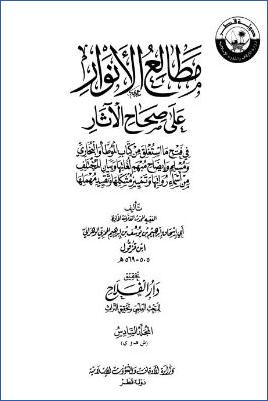 مطالع الأنوار
على صحاح الآثار
في فتح ما استغلق من كتاب الموطأ والبخاري
ومسلم وإيضاح مبهم لغاتها وبيان المختلف
من أسماء رواتها وتمييز مشكلها وتقييد مهملها
تأليف
أبي إسحاق إبراهيم بن يوسف بن إبراهيم الوهراني
ابن قرقول
٥٠٥ - ٥٦٩ هـ
تحقيق
دار الفلاح
للبحث العلمي وتحقيق التراث
المجلد السادس
وزارة الأوقاف والشؤون الإسلامية
دولة قطر